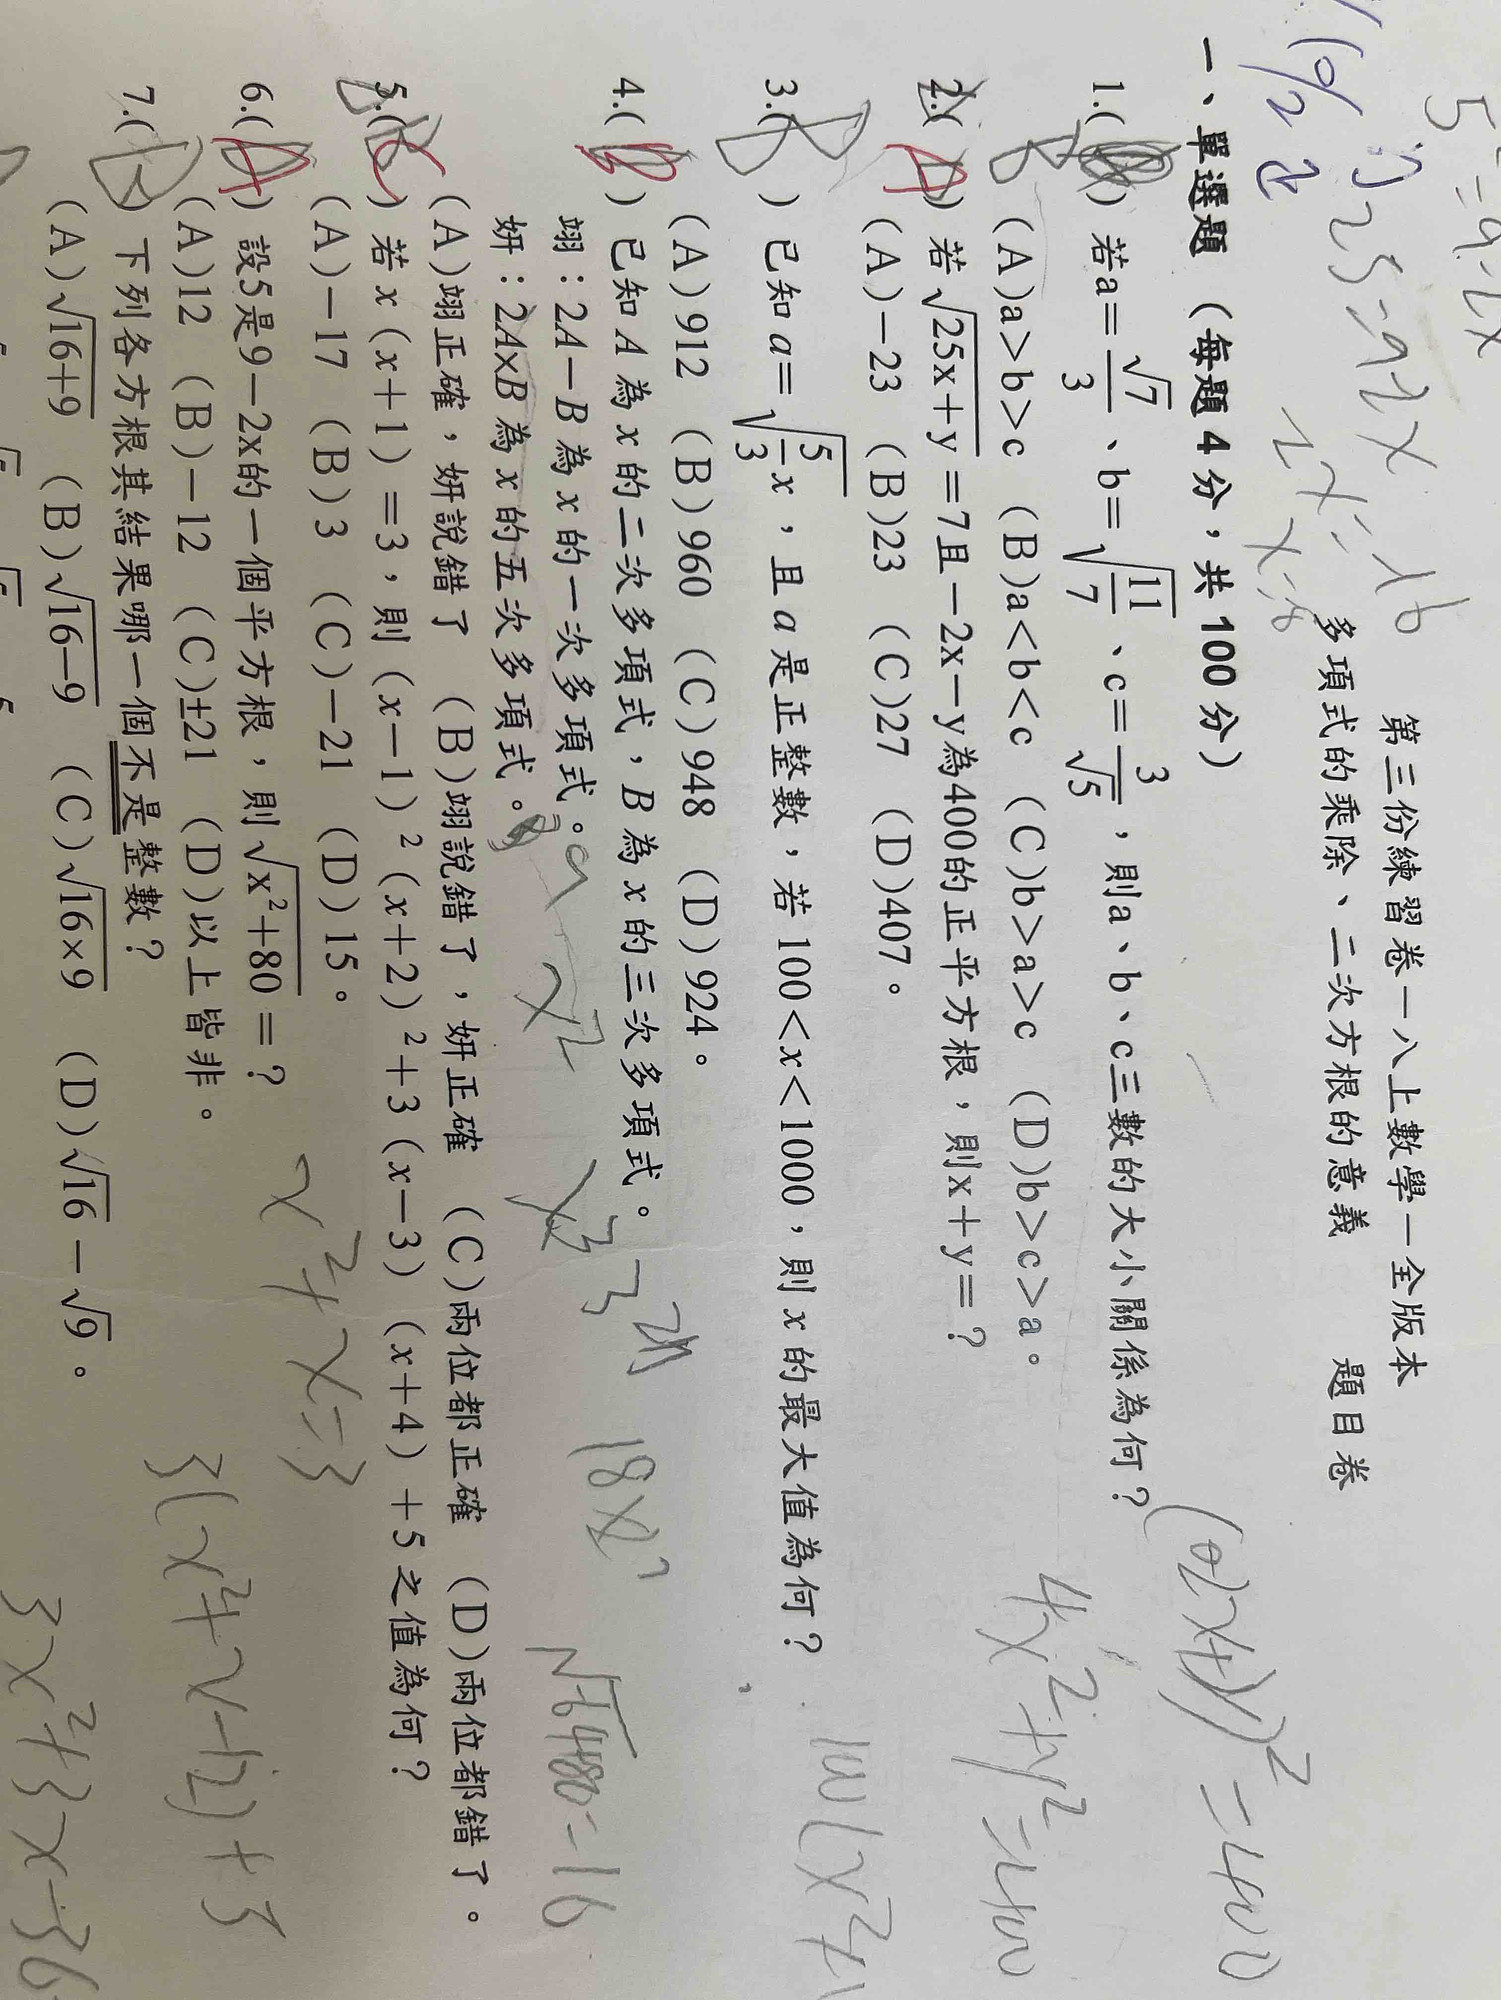 第三份練習卷－八上數學－全版本
多項式的乘除、二次方根的意義 題目卷
一、單選題（每題4分，共100分）
1.( ) 若a=√7/3、b=√(11/7)、c=3/√5，則a、b、c三數的大小關係為何？
(A)a>b>c (B)a<b<c (C)b>a>c (D)b>c>a。
2.( ) 若√(25x+y)=7且－2x－y為400的正平方根，則x+y=？
(A)－23 (B)23 (C)27 (D)407。
3.( ) 已知a=√(5/3 x)，且a是正整數，若100<x<1000，則x的最大值為何？
(A)912 (B)960 (C)948 (D)924。
4.( ) 已知A為x的二次多項式，B為x的三次多項式。
翊：2A－B為x的一次多項式。
妍：2A×B為x的五次多項式。
(A)翊正確，妍說錯了 (B)翊說錯了，妍正確 (C)兩位都正確 (D)兩位都錯了。
5.( ) 若x(x+1)=3，則(x－1)²(x+2)²+3(x－3)(x+4)+5之值為何？
(A)－17 (B)3 (C)－21 (D)15。
6.( ) 設5是9－2x的一個平方根，則√(x²+80)=？
(A)12 (B)－12 (C)±21 (D)以上皆非。
7.( ) 下列各方根其結果哪一個不是整數？
(A)√(16+9) (B)√(16－9) (C)√(16×9) (D)√16－√9。
x²+x=3
3(x²+x-12)+5
3x²+3x-36
4x²+y²=400
18x²